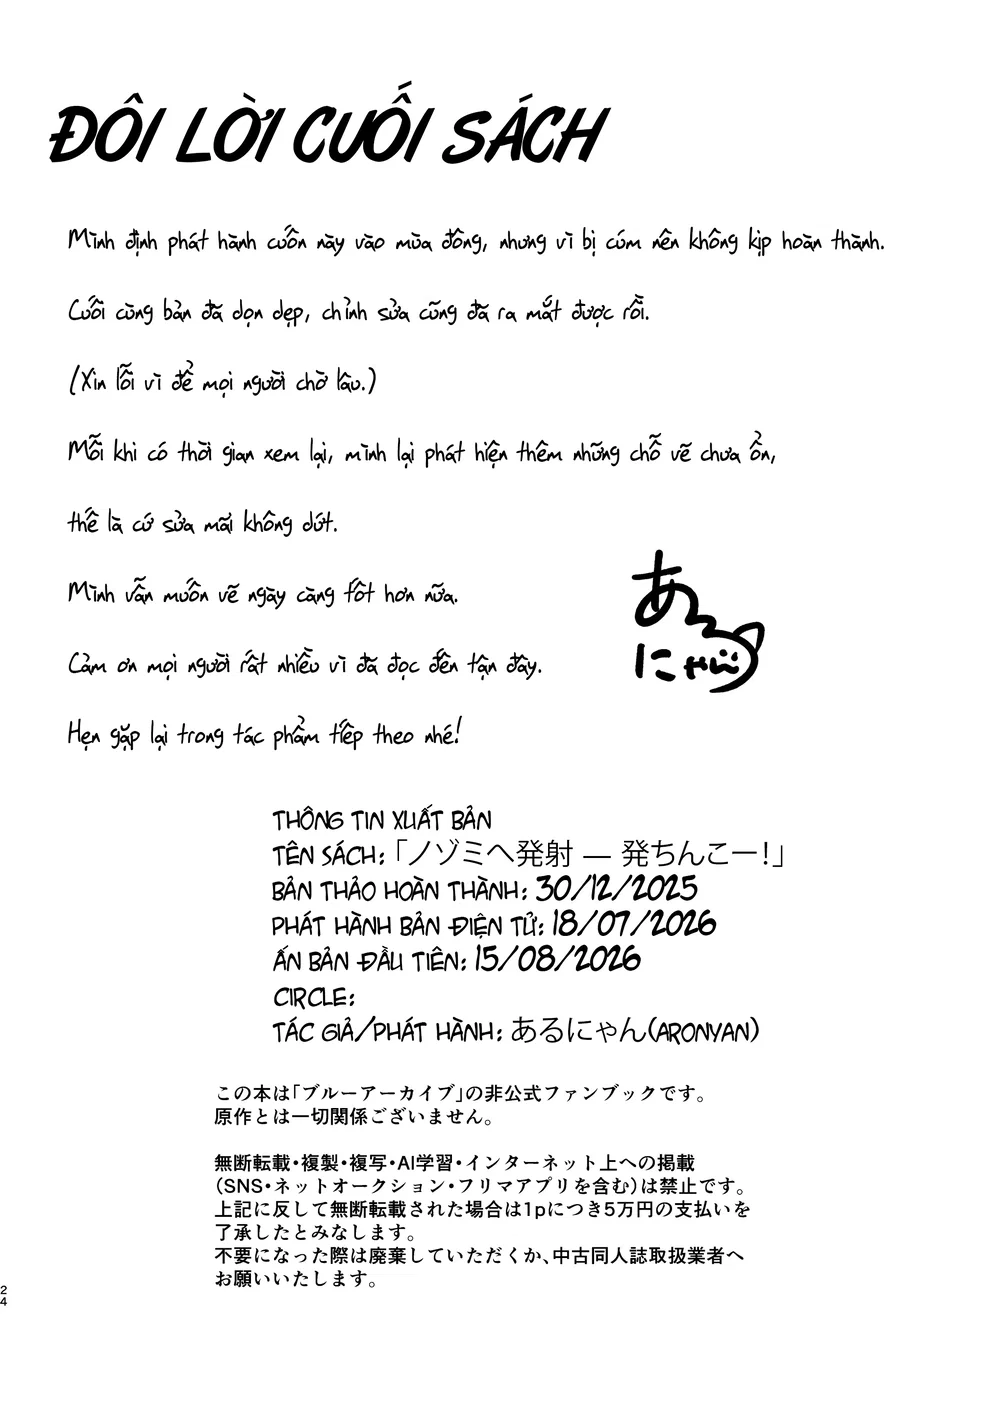 ĐÔI LỜI CUỐI SÁCH
Mình định phát hành cuốn này vào mùa đông, nhưng vì bị cúm nên không kịp hoàn thành.
Cuối cùng bản đã dọn dẹp, chỉnh sửa cũng đã ra mắt được rồi.
(Xin lỗi vì để mọi người chờ lâu.)
Mỗi khi có thời gian xem lại, mình lại phát hiện thêm những chỗ vẽ chưa ổn,
thế là cứ sửa mãi không dứt.
Mình vẫn muốn vẽ ngày càng tốt hơn nữa.
Cảm ơn mọi người rất nhiều vì đã đọc đến tận đây.
Hẹn gặp lại trong tác phẩm tiếp theo nhé!
あるにゃん
THÔNG TIN XUẤT BẢN
TÊN SÁCH: 「ノゾミへ発射 — 発ちんこー!」
BẢN THẢO HOÀN THÀNH: 30/12/2025
PHÁT HÀNH BẢN ĐIỆN TỬ: 18/07/2026
ẤN BẢN ĐẦU TIÊN: 15/08/2026
CIRCLE:
TÁC GIẢ/PHÁT HÀNH: あるにゃん(ARONYAN)
この本は「ブルーアーカイブ」の非公式ファンブックです。
原作とは一切関係ございません。
無断転載・複製・複写・AI学習・インターネット上への掲載
(SNS・ネットオークション・フリマアプリを含む)は禁止です。
上記に反して無断転載された場合は1pにつき5万円の支払いを
了承したとみなします。
不要になった際は廃棄していただくか、中古同人誌取扱業者へ
お願いいたします。
24